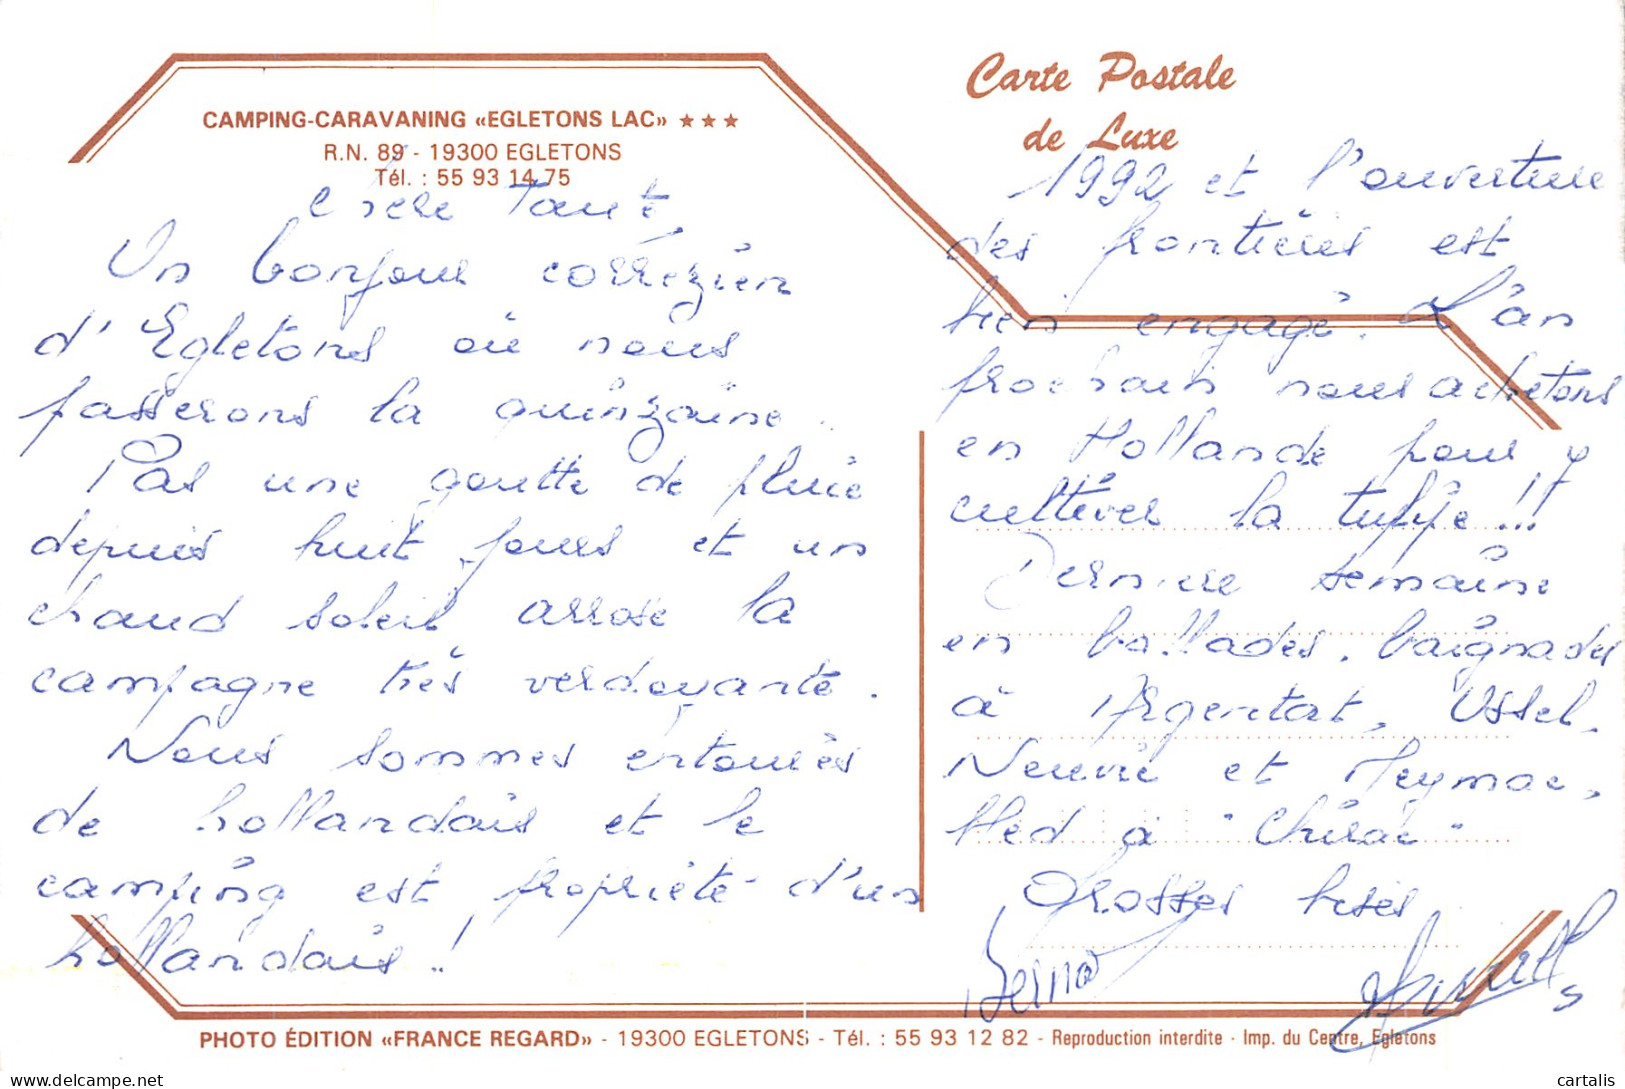 CAMPING-CARAVANING «EGLETONS LAC» ★★★
R.N. 89 - 19300 EGLETONS
Tél. : 55 93 14 75
Chère Tante,
Un bonjour corrézien
d'Egletons où nous
passerons la quinzaine.
Pas une goutte de pluie
depuis huit jours et un
chaud soleil arrose la
campagne très verdoyante.
Nous sommes entourés
de hollandais et le
camping est propriété d'un
hollandais !
Carte Postale
de Luxe
1992 et l'ouverture
des frontières est
bien engagé. L'an
prochain nous achetons
en Hollande pour y
cultiver la tulipe !!!
Dernière semaine
en ballades, baignades
à Argentat, Ussel,
Neuvic et Meymac,
Med à "Chirac"
Grosses bises
Bernard
PHOTO ÉDITION «FRANCE REGARD» - 19300 EGLETONS - Tél. : 55 93 12 82 - Reproduction interdite - Imp. du Centre, Egletons
delcampe.net
cartalis